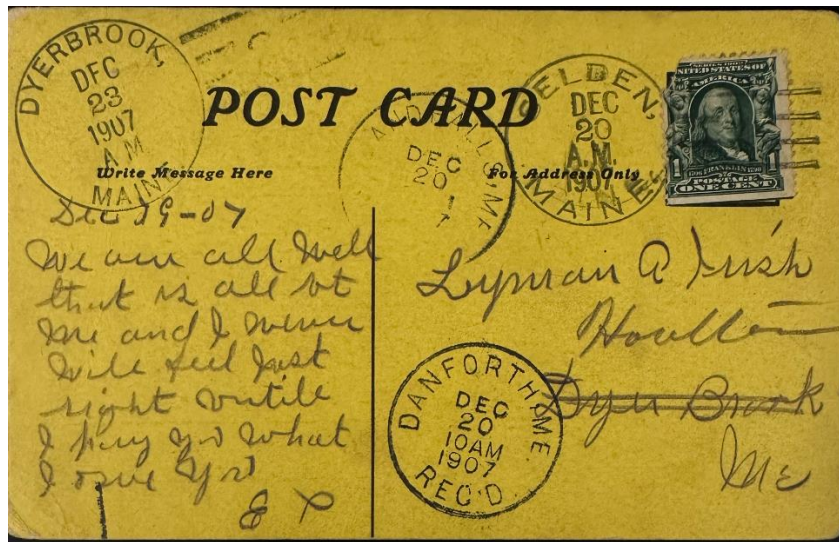 DYERBROOK,
DEC
23
1907
A M
MAINE
POST CARD
SELDEN,
DEC
20
A.M.
1907
MAINE
SERIES 1902
UNITED STATES OF
AMERICA
1 1706 FRANKLIN 1790 1
POSTAGE
ONE CENT
MILLS, ME
DEC
20
Write Message Here
For Address Only
Dec 19-07
We are all well
that is all but
me and I never
will feel just
right untile
I pay you what
I owe you
Lyman A
Houlton
Dyer Brook
Me
DANFORTH, ME.
DEC
20
10AM
1907
REC'D.